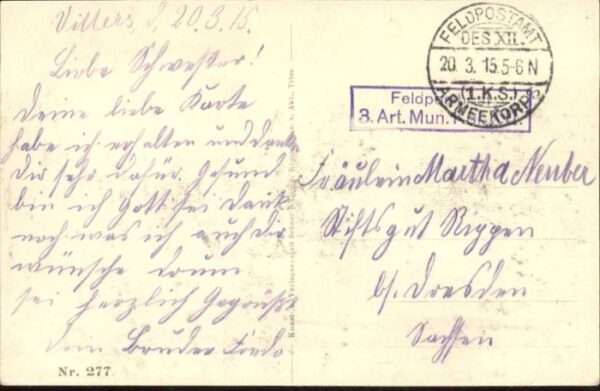 Villers, d, 20.3.15.
Liebe Schwester!
Deine liebe Karte
habe ich erhalten und danke
Dir sehr dafür. Gesund
bin ich Gott sei Dank
noch was ich auch Dir
wünsche Drum
sei herzlich Gegrüßt
Bruder
Nr. 277
FELDPOSTAMT
DES XII.
20. 3. 15.5-6N
(1.K.S.)
ARMEEKORPS
3. Art. Mun.
Fräulein Martha Neuber
Stiftsgut Rippen
b/. Dresden
Sachsen